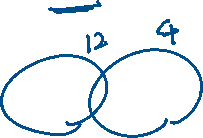 12 4